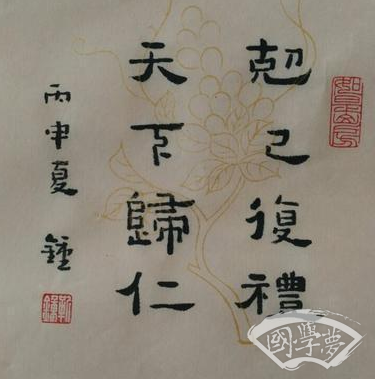 剋己復禮
天下歸仁
丙申夏
鍾
國學夢